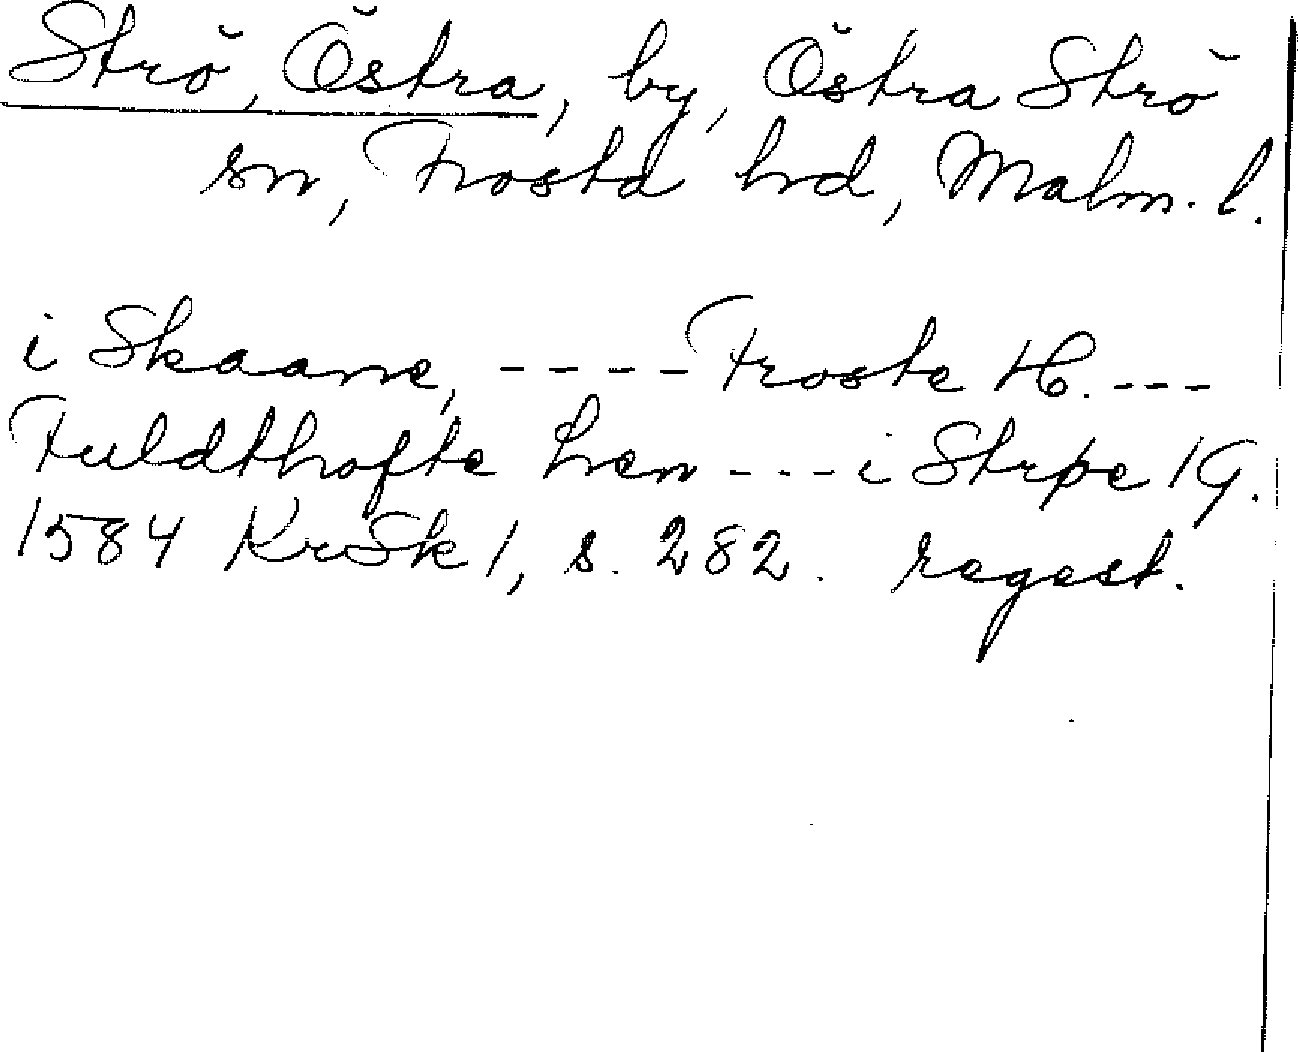 Strö, Östra, by, Östra Strö
sn, Frosta hrd, Malm. l.
i Skaane, ---- Froste H. ---
Fuldthofte Len --- i Strøe 1 G.
1584 KrSk 1, s. 282. regest.